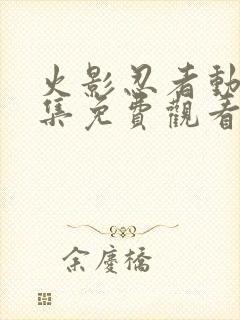 火影忍者動
集免費觀看
余慶橋